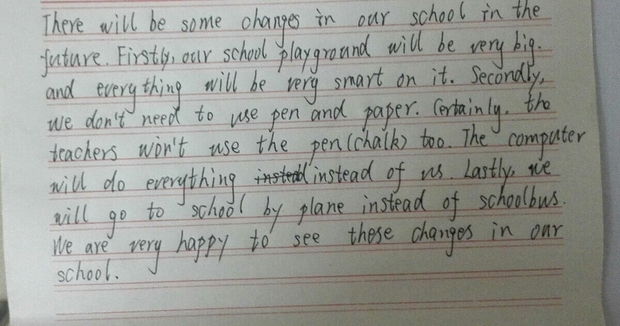 There will be some changes in our school in the
future. Firstly, our school playground will be very big.
and everything will be very smart on it. Secondly,
we don't need to use pen and paper. Certainly, the
teachers won't use the pen (chalk) too. The computer
will do everything instead instead of us. Lastly, we
will go to school by plane instead of schoolbus.
We are very happy to see these changes in our
school.